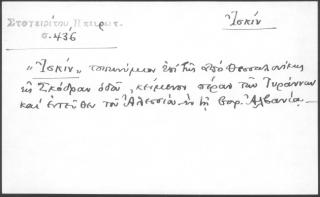 Στογειρίτου Πειρωτ.
σ. 436
Ἰσκίν
"Ἰσκίν" τοπωνύμιον ἐπὶ τῆς ἀπὸ Θεσσαλονίκης
εἰς Σκόδραν ὁδοῦ, κείμενον πέραν τῶν Τυράννων
καὶ ἐντεῦθεν τοῦ Ἀλεσσίου ἐν τῇ βορ. Ἀλβανίᾳ.—